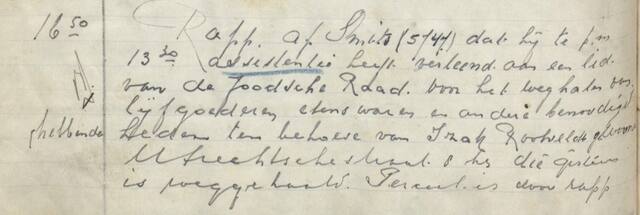 16 50 Rapp. af Smits (5/47) dat hij te p.m
13 30 assistentie heeft verleend aan een lid
van de Joodsche Raad. voor het weghalen van
lijfgoederen etenswaren en andere benoodigd
heden ten behoeve van Izak Rootveldt
Utrechtschestraat 8 hs die gisteren
is weggehaald. Perceel is door rapp
ghebbende